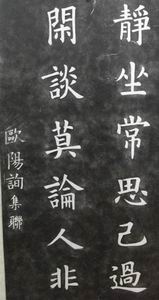 靜坐常思己過
閑談莫論人非
歐陽詢集聯